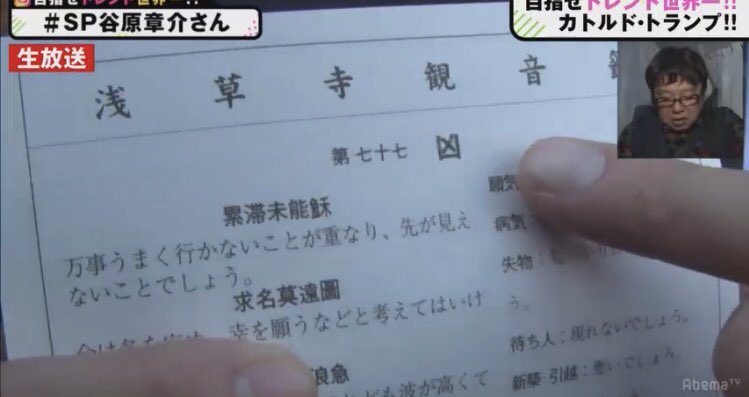 目指せトレンド世界一!!
#SP谷原章介さん
生放送
目指せトレンド世界一!!
カトルド・トランプ!!
浅草寺観音
第七十七 凶
累滞未能穌
万事うまく行かないことが重なり、先が見え
ないことでしょう。
求名莫遠圖
幸を願うなどと考えてはいけ
浪急
も波が高くて
願
病気
失物:
う。
待ち人:現れないでしょう。
新築・引越:悪いでしょう。
AbemaTV